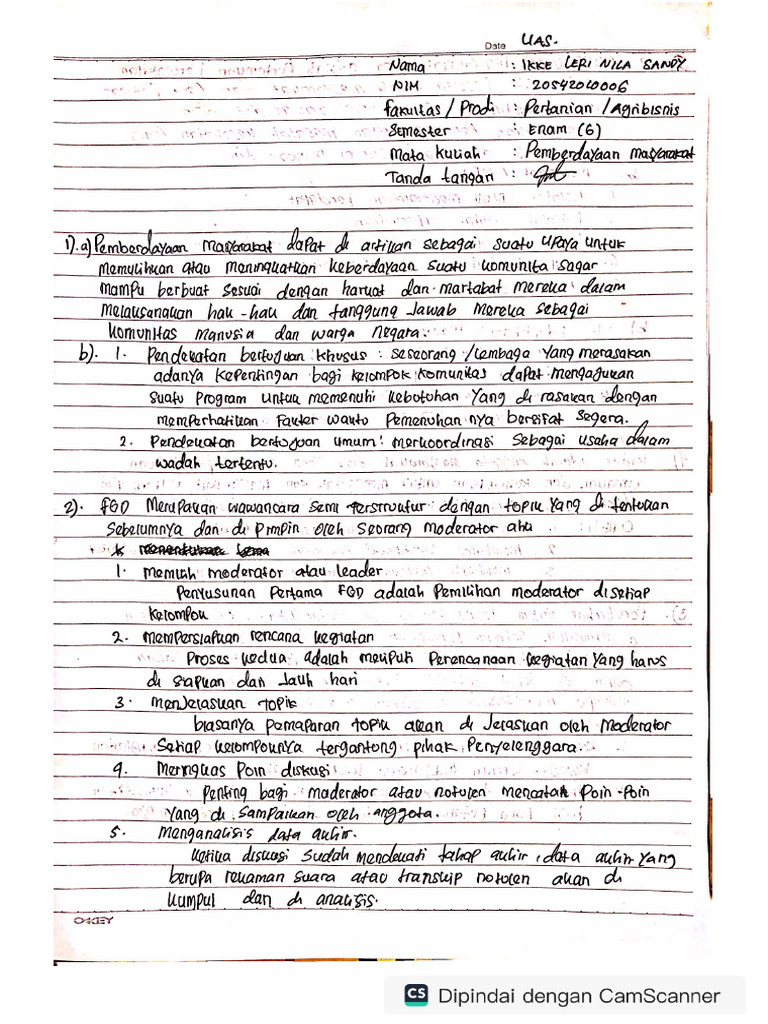 Date UAS.
Nama : IKKE LERI NILA SANDY
NIM : 20542010006
Fakultas / Prodi : Pertanian / Agribisnis
Semester : Enam (6)
Mata kuliah : Pemberdayaan Masyarakat
Tanda tangan :
1). a) Pemberdayaan masyarakat dapat di artikan sebagai suatu upaya untuk
memulihkan atau meningkatkan keberdayaan suatu komunita sagar
mampu berbuat sesuai dengan harkat dan martabat mereka dalam
melaksanakan hak-hak dan tanggung jawab mereka sebagai
komunitas manusia dan warga negara.
b). 1. Pendekatan bertujuan khusus : seseorang / lembaga yang merasakan
adanya kepentingan bagi kelompok komunitas dapat mengajukan
suatu program untuk memenuhi kebotohan yang di rasakan dengan
memperhatikan faktor waktu pemenuhan nya bersifat segera.
2. Pendekatan bertujuan umum : merkoordinasi sebagai usaha dalam
wadah tertentu.
2). FGD merupakan wawancara semi terstruktur dengan topik yang di tentukan
sebelumnya dan di pimpin oleh seorang moderator ahu
1. memilih moderator atau leader
Penyusunan pertama FGD adalah pemilihan moderator disetiap
kelompok
2. mempersiapkan rencana kegiatan
Proses kedua, adalah meliputi perencanaan kegiatan yang harus
di siapkan dan jauh hari
3. menjelaskan topik
biasanya pemaparan topik akan di jelaskan oleh moderator
setiap kelompoknya tergantong pihak penyelenggara.
4. Meringkas poin diskusi
Penting bagi moderator atau notulen mencatat poin-poin
yang di sampaikan oleh anggota.
5. Menganalisis data akhir.
ketika diskusi sudah mendekati tahap akhir, data akhir yang
berupa rekaman suara atau transkip notulen akan di
kumpul dan di analisis.
OKEY
CS Dipindai dengan CamScanner